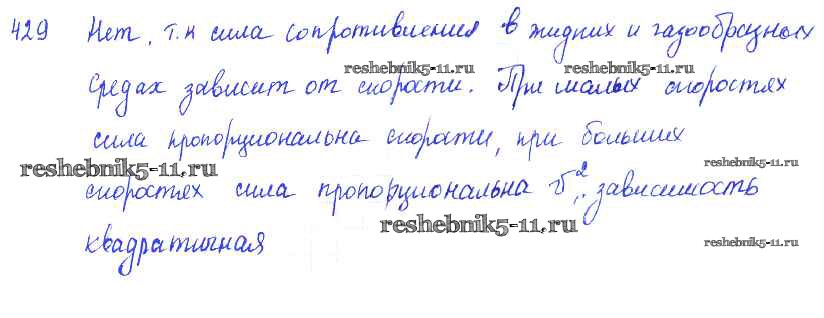 429 Нет, т.к сила сопротивления в жидких и газообразных
reshebnik5-11.ru
средах зависит от скорости. При малых скоростях
сила пропорциональна скорости, при больших
reshebnik5-11.ru
reshebnik5-11.ru
скоростях сила пропорциональна υ², зависимость
reshebnik5-11.ru
квадратичная
reshebnik5-11.ru